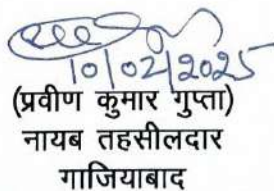 10/02/2025
(प्रवीण कुमार गुप्ता)
नायब तहसीलदार
गाजियाबाद